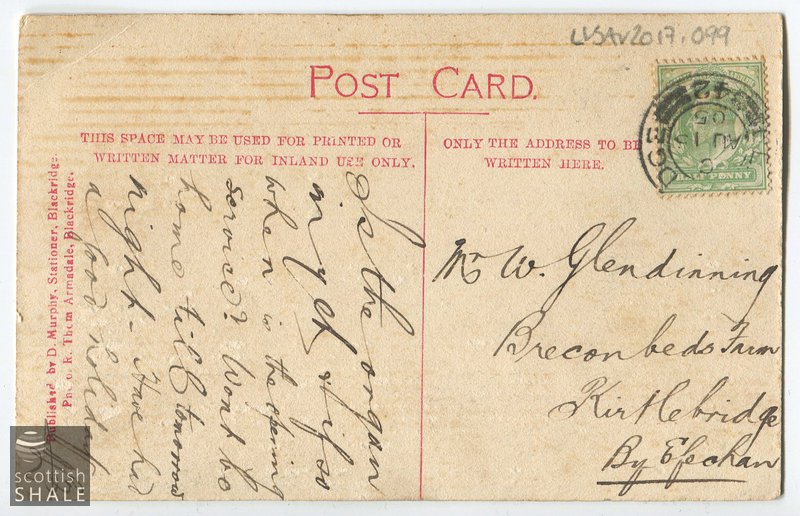 LVSAV2017.099
POST CARD.
THIS SPACE MAY BE USED FOR PRINTED OR
WRITTEN MATTER FOR INLAND USE ONLY.
ONLY THE ADDRESS TO BE
WRITTEN HERE.
Is the organ
in yet & if so
when is the opening
service? Wont be
home till tomorrow
night - Have had
a good holiday
Mr W. Glendinning
Breconbeds Farm
Kirtlebridge
By Ecefechan
Published by D. Murphy, Stationer, Blackridge.
Photo R. Thom Armadale, Blackridge.
AU 15
05
HALF PENNY
scottish
SHALE